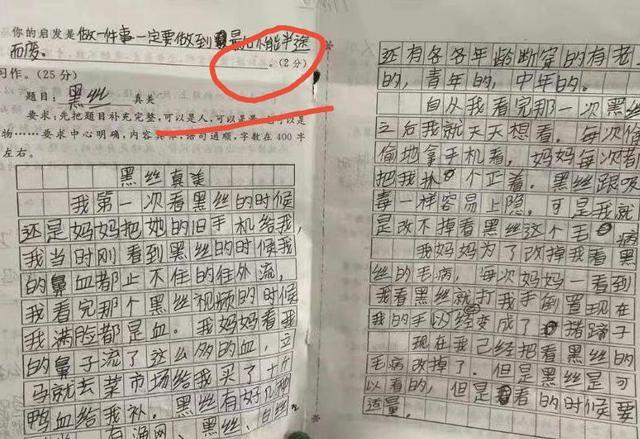 你的启发是做一件事一定要做到最后不能半途
而废。
(2分)
习作。(25分)
题目:黑丝真美
要求:先把题目补充完整,可以是人,可以是景,可以是
物……要求中心明确,内容具体,语句通顺,字数在400字
左右。
黑丝真美
我第一次看黑丝的时候
还是妈妈把她的旧手机给我,
我当时刚看到黑丝的时候我
的鼻血都止不住的往外流,
我看完那个黑丝视频的时候
我满脸都是血。我妈妈看我
的鼻子流了这么多的血,立
马就去菜市场给我买了十斤
鸭血给我补。黑丝有好几种
有渔网、黑丝、白丝
还有各各年龄断穿的有老
的,青年的,中年的。
自从我看完那一次黑丝
之后我就天天想看。每次偷
偷地拿手机看,妈妈每次都
把我抓个正着。黑丝跟吸
毒一样容易上隐。可是我就
是改不掉看黑丝这个毛病
我妈妈为了改掉我看黑
丝的毛病,每次妈妈一看到
我看黑丝就打我手倒置现在
我的手以经变成了猪蹄子
现在我己经把看黑丝的
毛病改掉了。但是黑丝是可
以看的,但是看的时候要
适量。